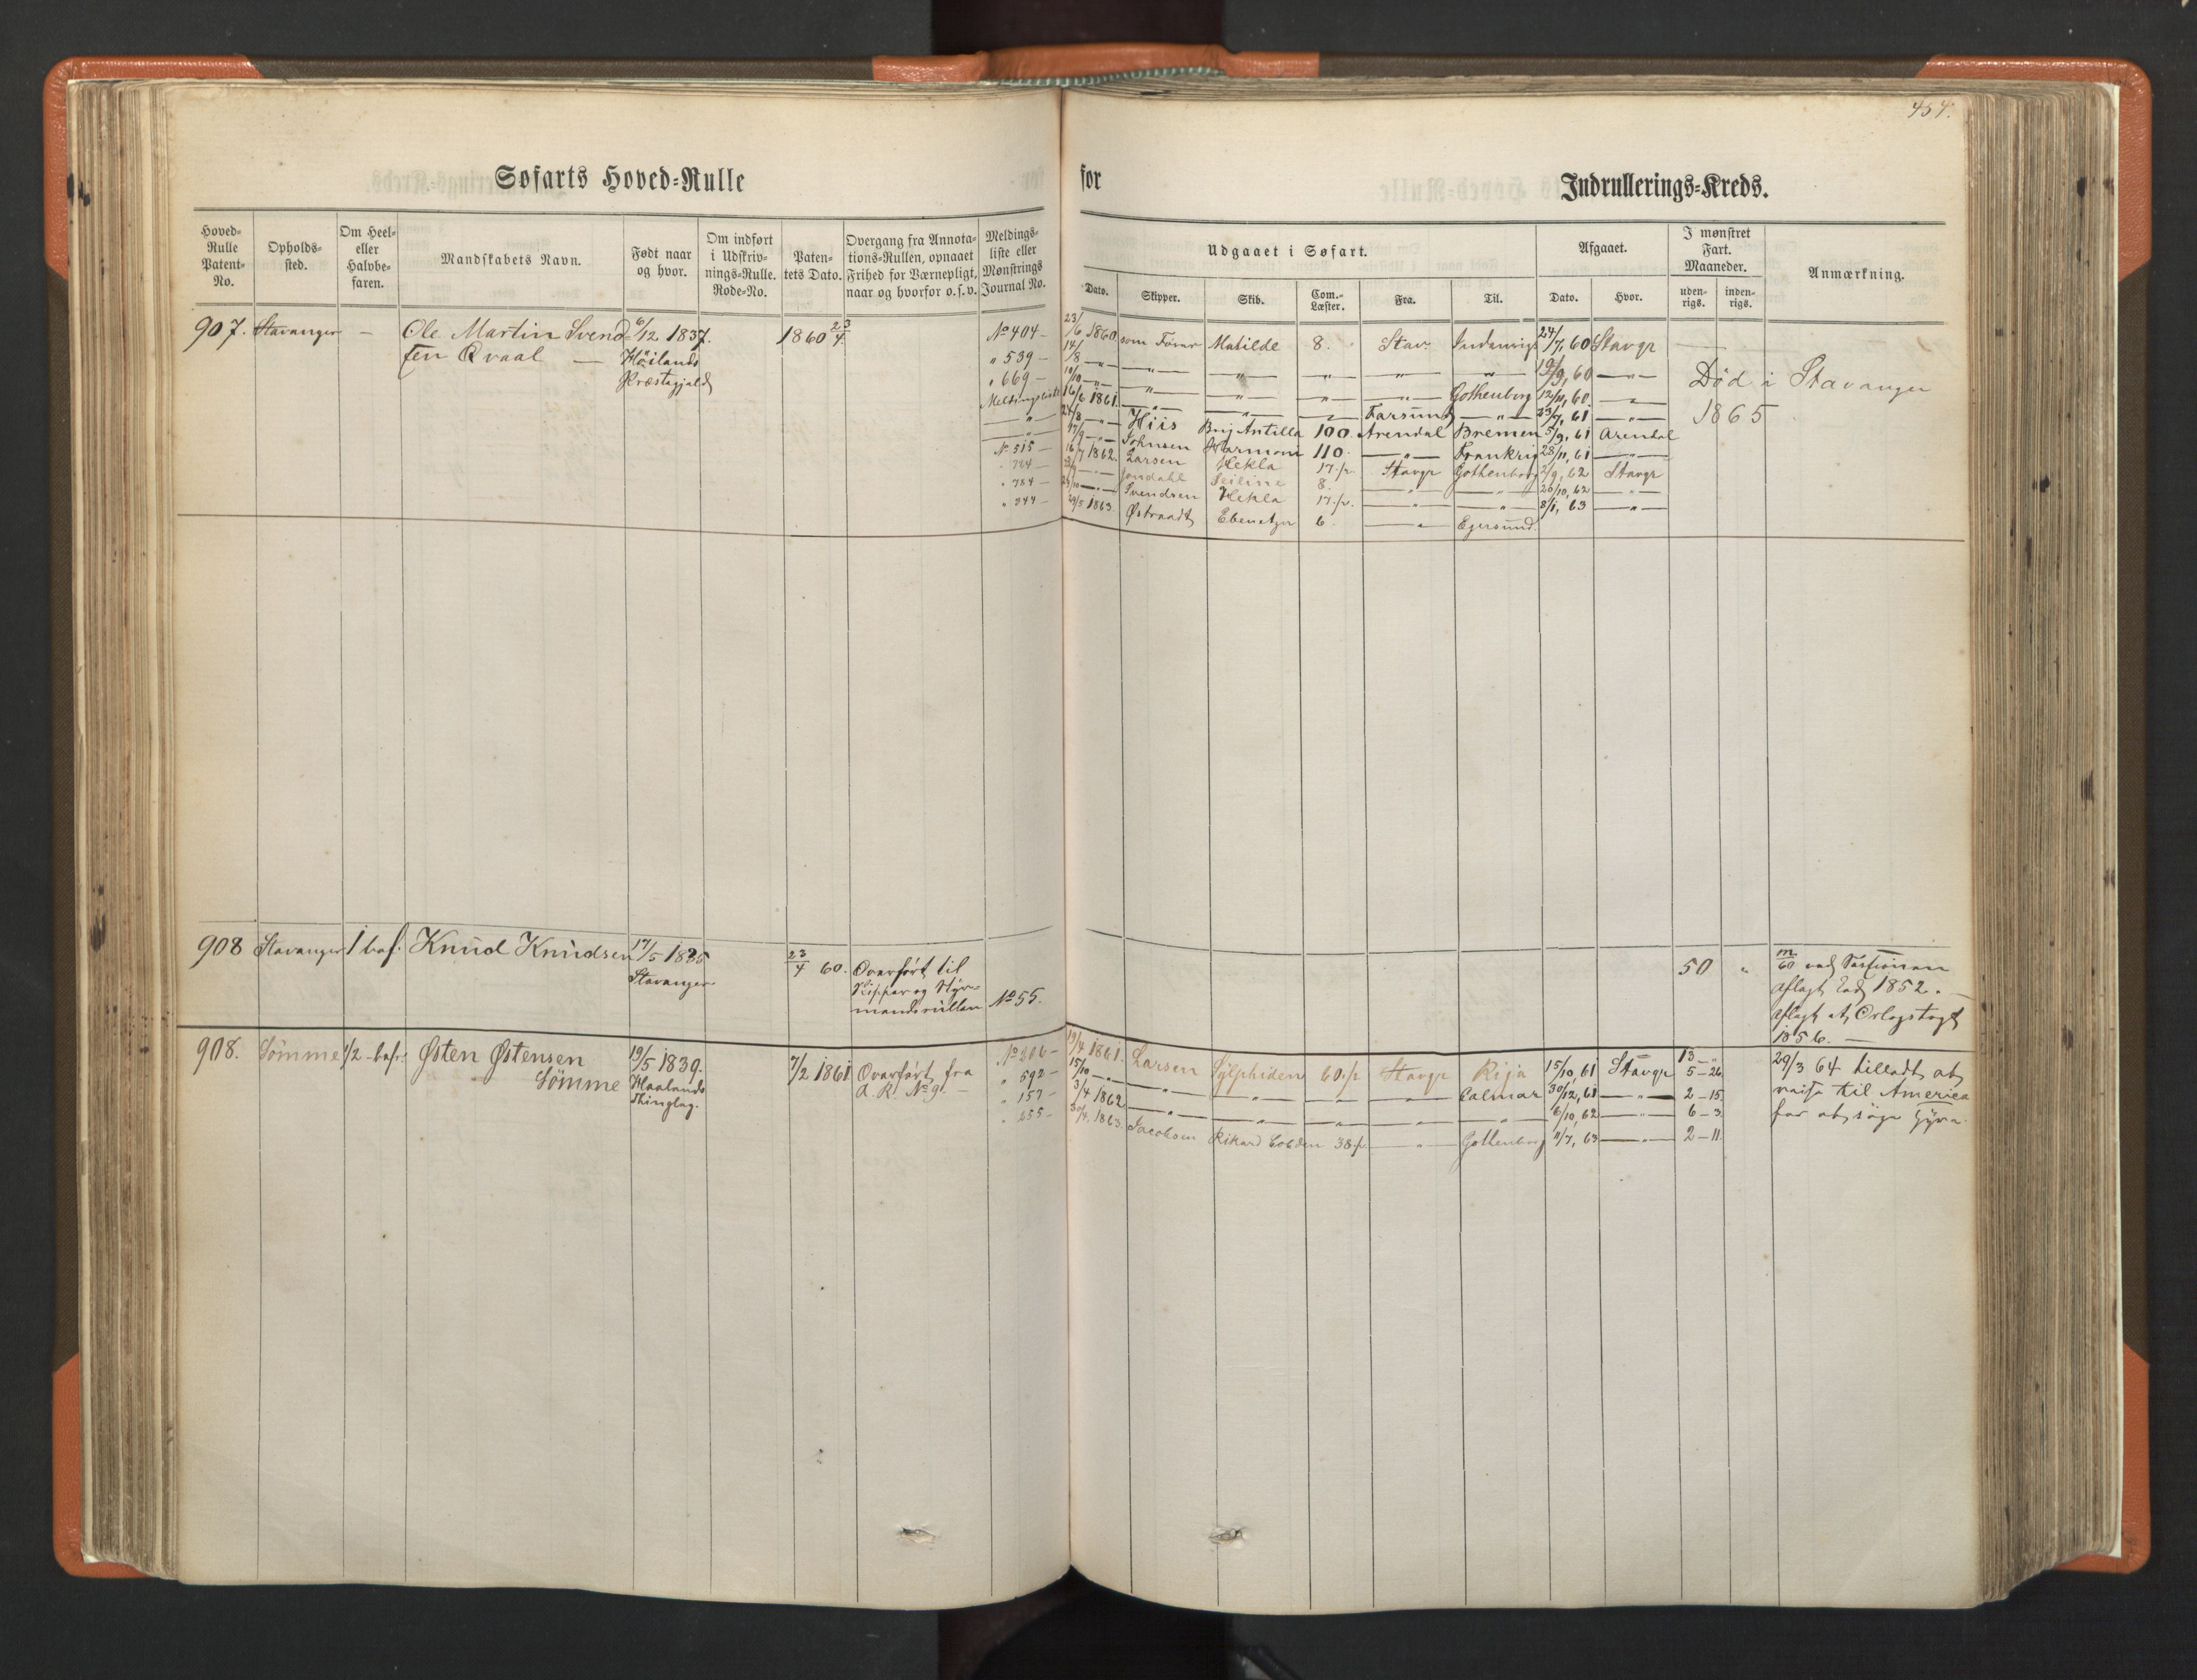 454.
Søfarts Hoved-Rulle for Indrullerings-Kreds.
Hoved-Rulle Patent-No. Opholds-sted. Om Heel- eller Halvbe-faren. Mandskabets Navn. Født naar og hvor. Om indført i Udskriv-nings-Rulle. Rode-No. Paten-tets Dato. Overgang fra Annota-tions-Rullen, opnaaet Frihed for Værnepligt, naar og hvorfor o.s.v. Meldings-liste eller Mønstrings Journal No.
Udgaaet i Søfart. Afgaaet. I mønstret Fart. Maaneder. Anmærkning.
Dato. Skipper. Skib. Com.-Læster. Fra. Til. Dato. Hvor. uden-rigs. inden-rigs.
907. Stavanger — Ole Martin Svend- 6/12 1837. 1860 23/4
sen Qvaal — Höilands
Præstegjeld
No 404 — 23/6 1860 som Fører Matilde 8. Stav. Indenrigs 24/7, 60 Stavgr
" 539 — 14/8 — " — " — " — " — " 19/9, 60 — " —
" 669 — 10/10 — " — " — " — " — " — Gothenborg 12/11, 60 — " —
Meldingsliste 16/6 1861 — " — " — " — Farsund — " — 23/7, 61 — " —
— " — 24/8 — Hiis Brig Antilla 100. Arendal Bremen 5/9, 61 Arendal
— " — 17/9 — " — Johnsen Harmoni 110. — " — Frankrig 28/11, 61 — " —
No 515 — 16/7 1862. Larsen Hekla 17.p. Stavgr Gothenborg 2/9, 62 Stavgr
" 724 — Jondahl Seiline 8. — " — " — 26/10, 62 — " —
" 784 — Svendsen Hekla 17.p. — " — " — 8/1, 63 — " —
" 344 — 29/5 1863. Østraadt Ebenetzer 6. — " — Egersund.
Död i Stavanger
1865
908 Stavanger 1 bef. Knud Knudsen 17/5 1835 23/4 60. Overfört til
Stavanger Skipper og Styr-
mandsrullen No 55.
50 " m/60 ved Sessionen
aflagt Eed 1852. —
aflagt et Orlogstogt
1856. —
908. Sömme 1/2 - bef. Østen Østensen 19/5 1839. 7/2 1861 Overfört fra
Sömme Haalands A. R. No 9. —
Thinglag.
No 206 — 19/4 1861. Larsen Sylphiden 60.p Stavgr Riga 15/10, 61 Stavgr 13 — "
" 592 — 15/10 — " — " — " — " — Calmar 30/12, 61 — " — 5 — 26
" 157 — 3/4 1862. — " — " — " — " — " — 6/10, 62 — " — 2 — 15
" 255 — 30/4 1863. Jacobsen Rikard Cobden 38.p. — " — Gothenborg 11/7, 63 — " — 6 — 3
2 — 11.
29/3 64 tilladt at
reise til America
for at søge Hyre.